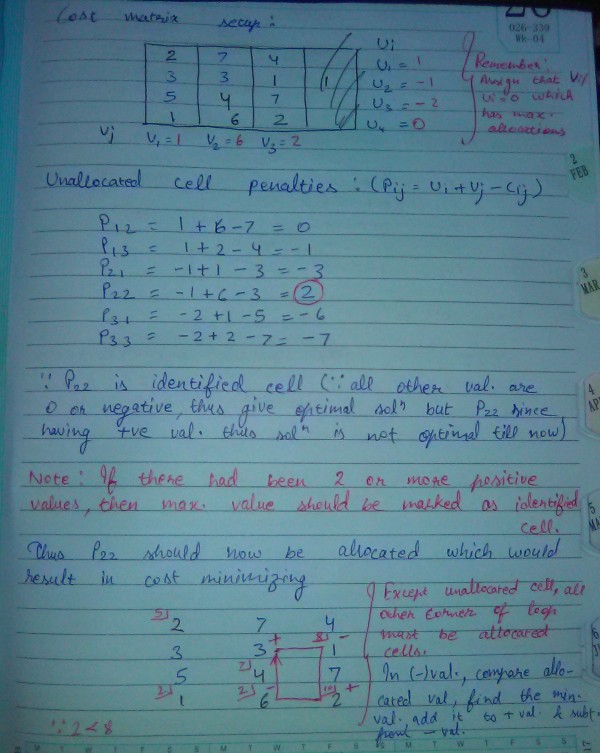 Cost matrix setup:
26
026-339
Wk-04
2 7 4
3 3 1 1
5 4 7
1 6 2
Ui
U1 = 1
U2 = -1
U3 = -2
U4 = 0
Vj V1 = 1 V2 = 6 V3 = 2
Remember:
Assign that Vj/
Ui=0 which
has max.
allocations
2
FEB
Unallocated cell penalties: (Pij = Ui + Vj - Cij)
P12 = 1 + 6 - 7 = 0
P13 = 1 + 2 - 4 = -1
P21 = -1 + 1 - 3 = -3
P22 = -1 + 6 - 3 = 2
P31 = -2 + 1 - 5 = -6
P33 = -2 + 2 - 7 = -7
3
MAR
∵ P22 is identified cell (∵ all other val. are
0 or negative, thus give optimal solⁿ but P22 since
having +ve val. thus solⁿ is not optimal till now)
4
Note: If there had been 2 or more positive
values, then max. value should be marked as identified
cell.
5
Thus P22 should now be allocated which would
result in cost minimizing
5 2 7 4
3 3 + 8 - 1
5 7 4 7
2 1 2 - 6 10 2 +
∵ 2 < 8
Except unallocated cell, all
other corner of loop
must be allocated
cells.
In (-) val., compare allo-
cated val, find the min.
val., add it to + val. & subt.
from - val.
6
17